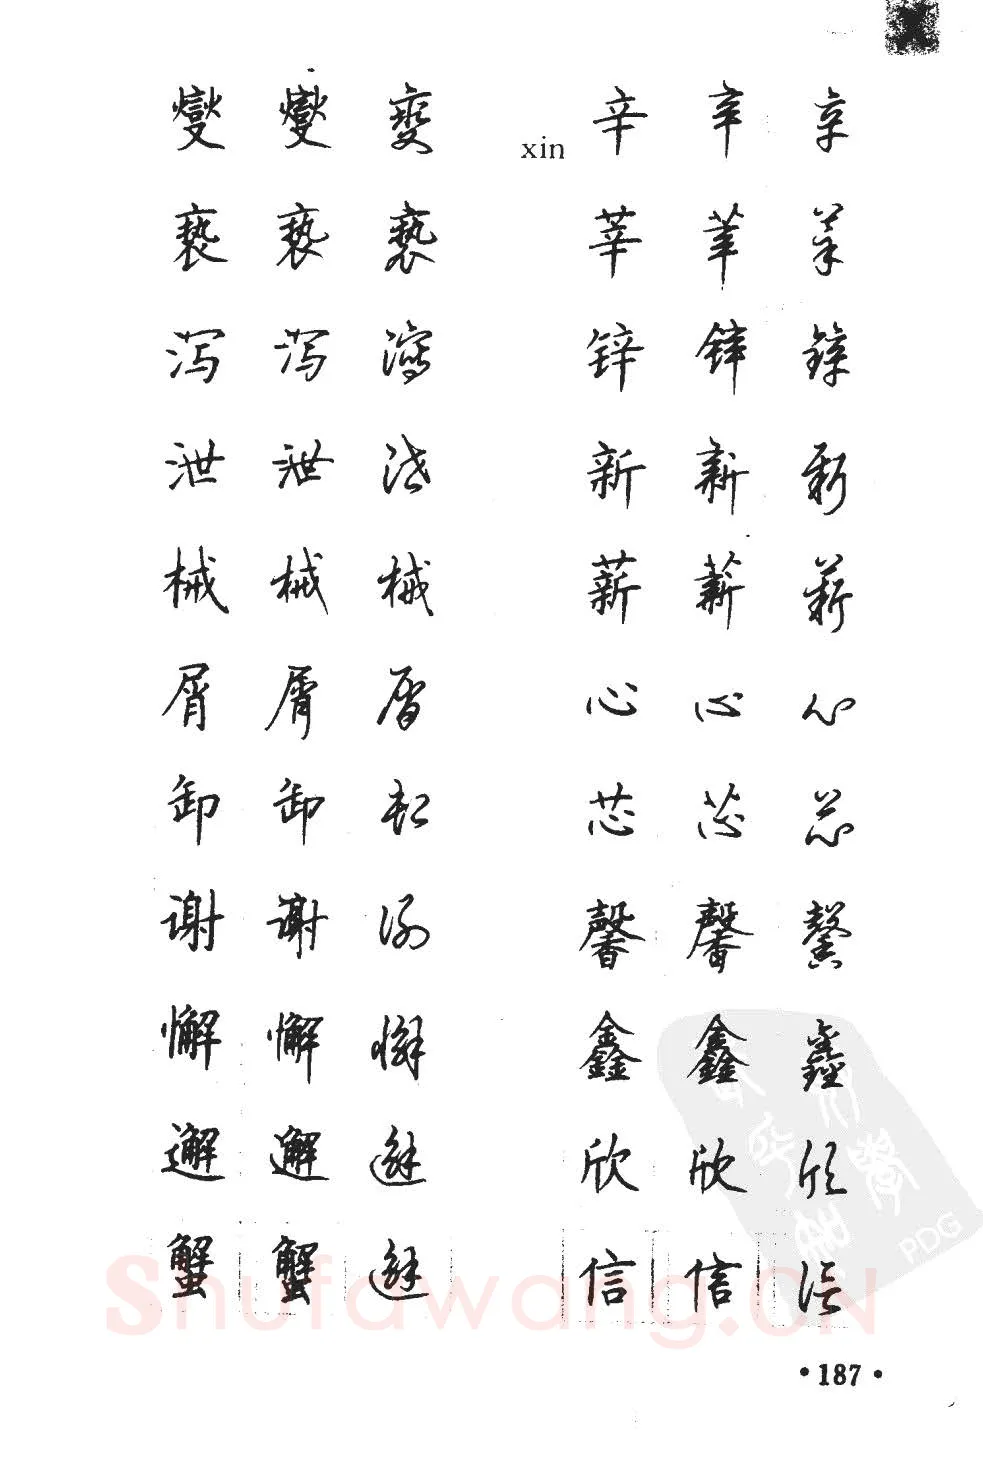 燮 燮 燮
亵 亵 亵
泻 泻 瀉
泄 泄 泄
械 械 械
屑 屑 屑
卸 卸 卸
谢 谢 谢
懈 懈 懈
邂 邂 邂
蟹 蟹 邂
xin 辛 辛 辛
莘 莘 莘
锌 锌 锌
新 新 新
薪 薪 薪
心 心 心
芯 芯 芯
馨 馨 馨
鑫 鑫 鑫
欣 欣 欣
信 信 信
Shufawang.CN
PDG
•187•